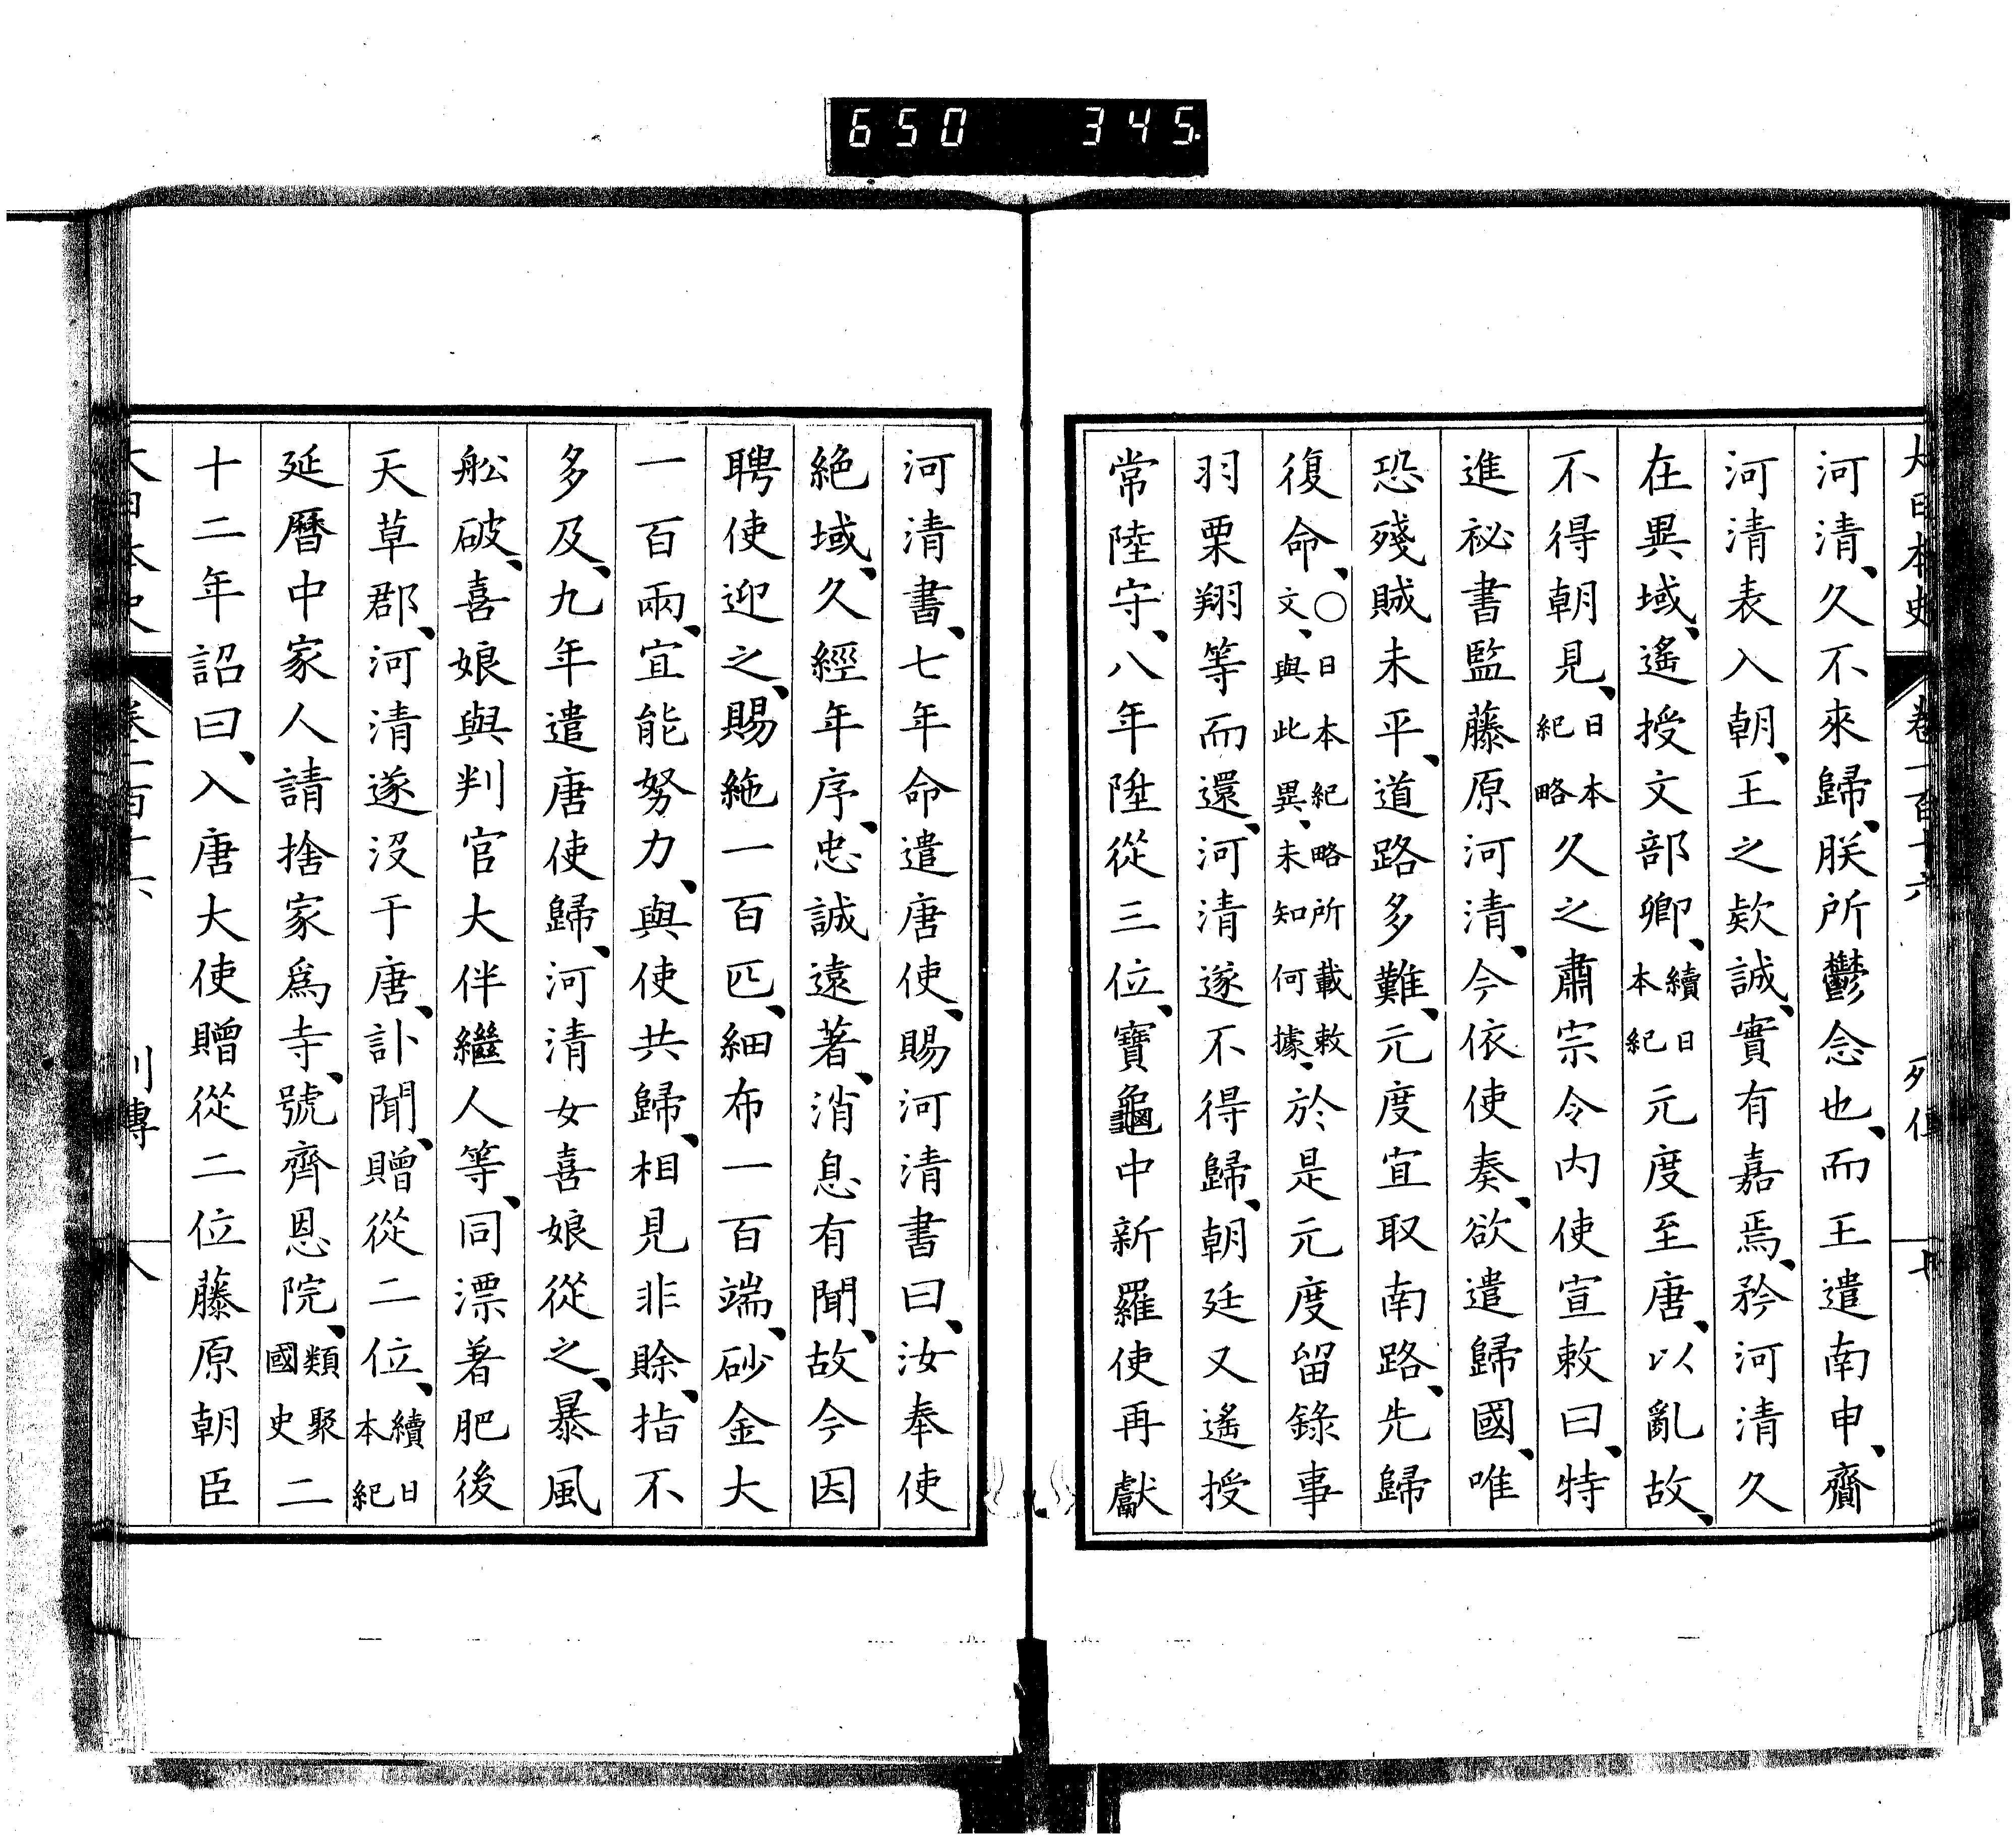 650 345
河清、久不來歸、朕所鬱念也、而王遣南申、齎
河清表入朝、王之欵誠、實有嘉焉、矜河清久
在異域、遙授文部卿、續日本紀元度至唐、以亂故、
不得朝見、日本紀略久之肅宗令内使宣敕曰、特
進祕書監藤原河清、今依使奏、欲遣歸國、唯
恐殘賊未平、道路多難、元度宜取南路、先歸
復命、○日本紀略所載敕文、與此異、未知何據、於是元度留錄事
羽栗翔等而還、河清遂不得歸、朝廷又遙授
常陸守、八年陞從三位、寶龜中新羅使再獻
河清書、七年命遣唐使、賜河清書曰、汝奉使
絕域、久經年序、忠誠遠著、消息有聞、故今因
聘使迎之、賜絁一百匹、細布一百端、砂金大
一百兩、宜能努力、與使共歸、相見非賒、指不
多及、九年遣唐使歸、河清女喜娘從之、暴風
舩破、喜娘與判官大伴繼人等、同漂着肥後
天草郡、河清遂沒于唐、訃聞、贈從二位、續日本紀
延曆中家人請捨家爲寺、號齊恩院、類聚國史二
十二年詔曰、入唐大使贈從二位藤原朝臣